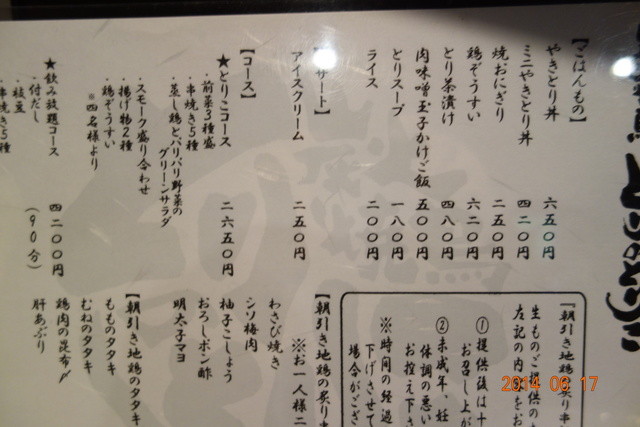 【ごはんもの】
やきとり丼 六五〇円
ミニやきとり丼 四二〇円
焼おにぎり 二五〇円
鶏ぞうすい 六二〇円
とり茶漬け 四八〇円
肉味噌玉子かけご飯 五〇〇円
とりスープ 一八〇円
ライス 二〇〇円
アイスクリーム 二五〇円
【コース】
★とりこコース 二六五〇円
・前菜3種盛
・串焼き5種
・蒸し鶏とパリパリ野菜の
グリーンサラダ
・スモーク盛り合わせ
・揚げ物2種
・鶏ぞうすい
※四名様より
★飲み放題コース 四二〇〇円
・付だし (90分)
・枝豆
・串焼き5種
『朝引き地鶏の炙り串
生ものご提供の
左記の内容をお
①提供後は十
お召し上が
②未成年、妊
体調の悪い
お控え下さ
※時間の経過
下げさせて
場合がござ
【朝引き地鶏の炙り串
※お一人様二
わさび焼き
シソ梅肉
柚子こしょう
おろしポン酢
明太子マヨ
【朝引き地鶏のタタキ
もものタタキ
むねのタタキ
鶏肉の昆布〆
肝あぶり
2014 06 17